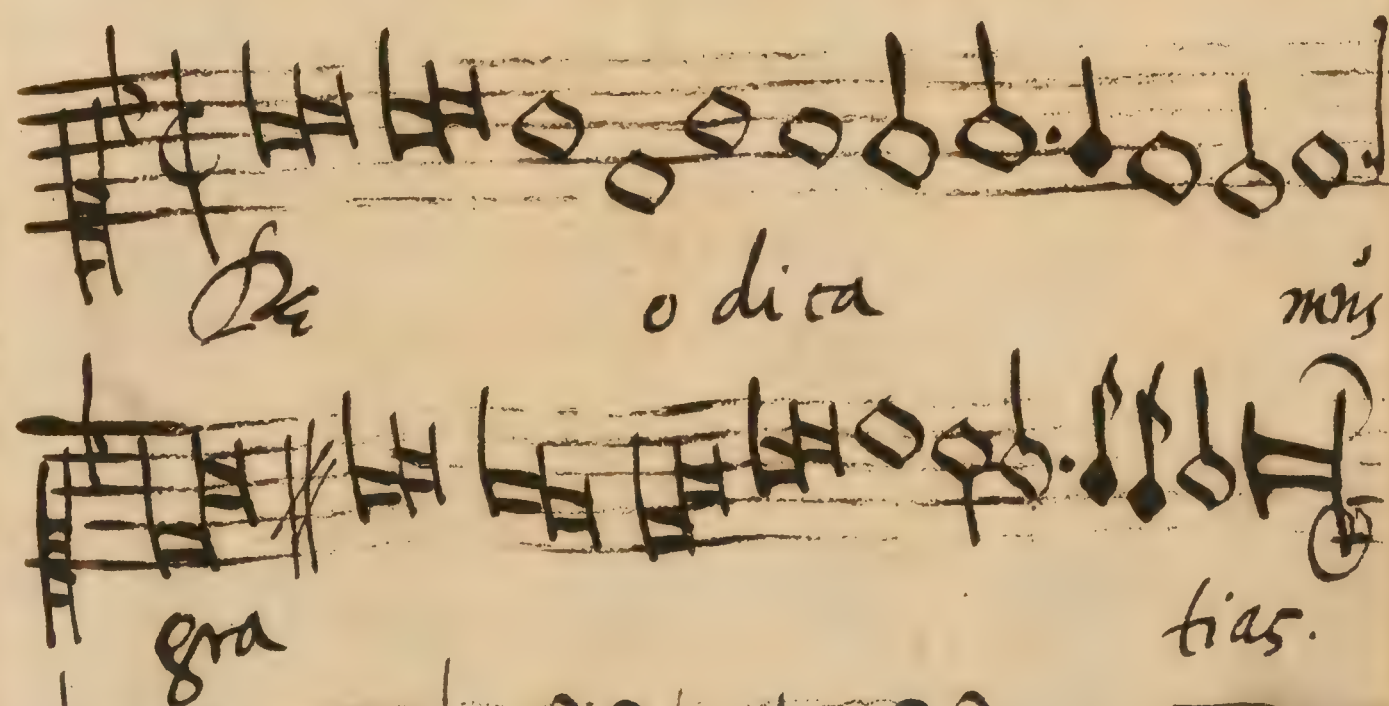 De o dica mꝰ
gra tias.